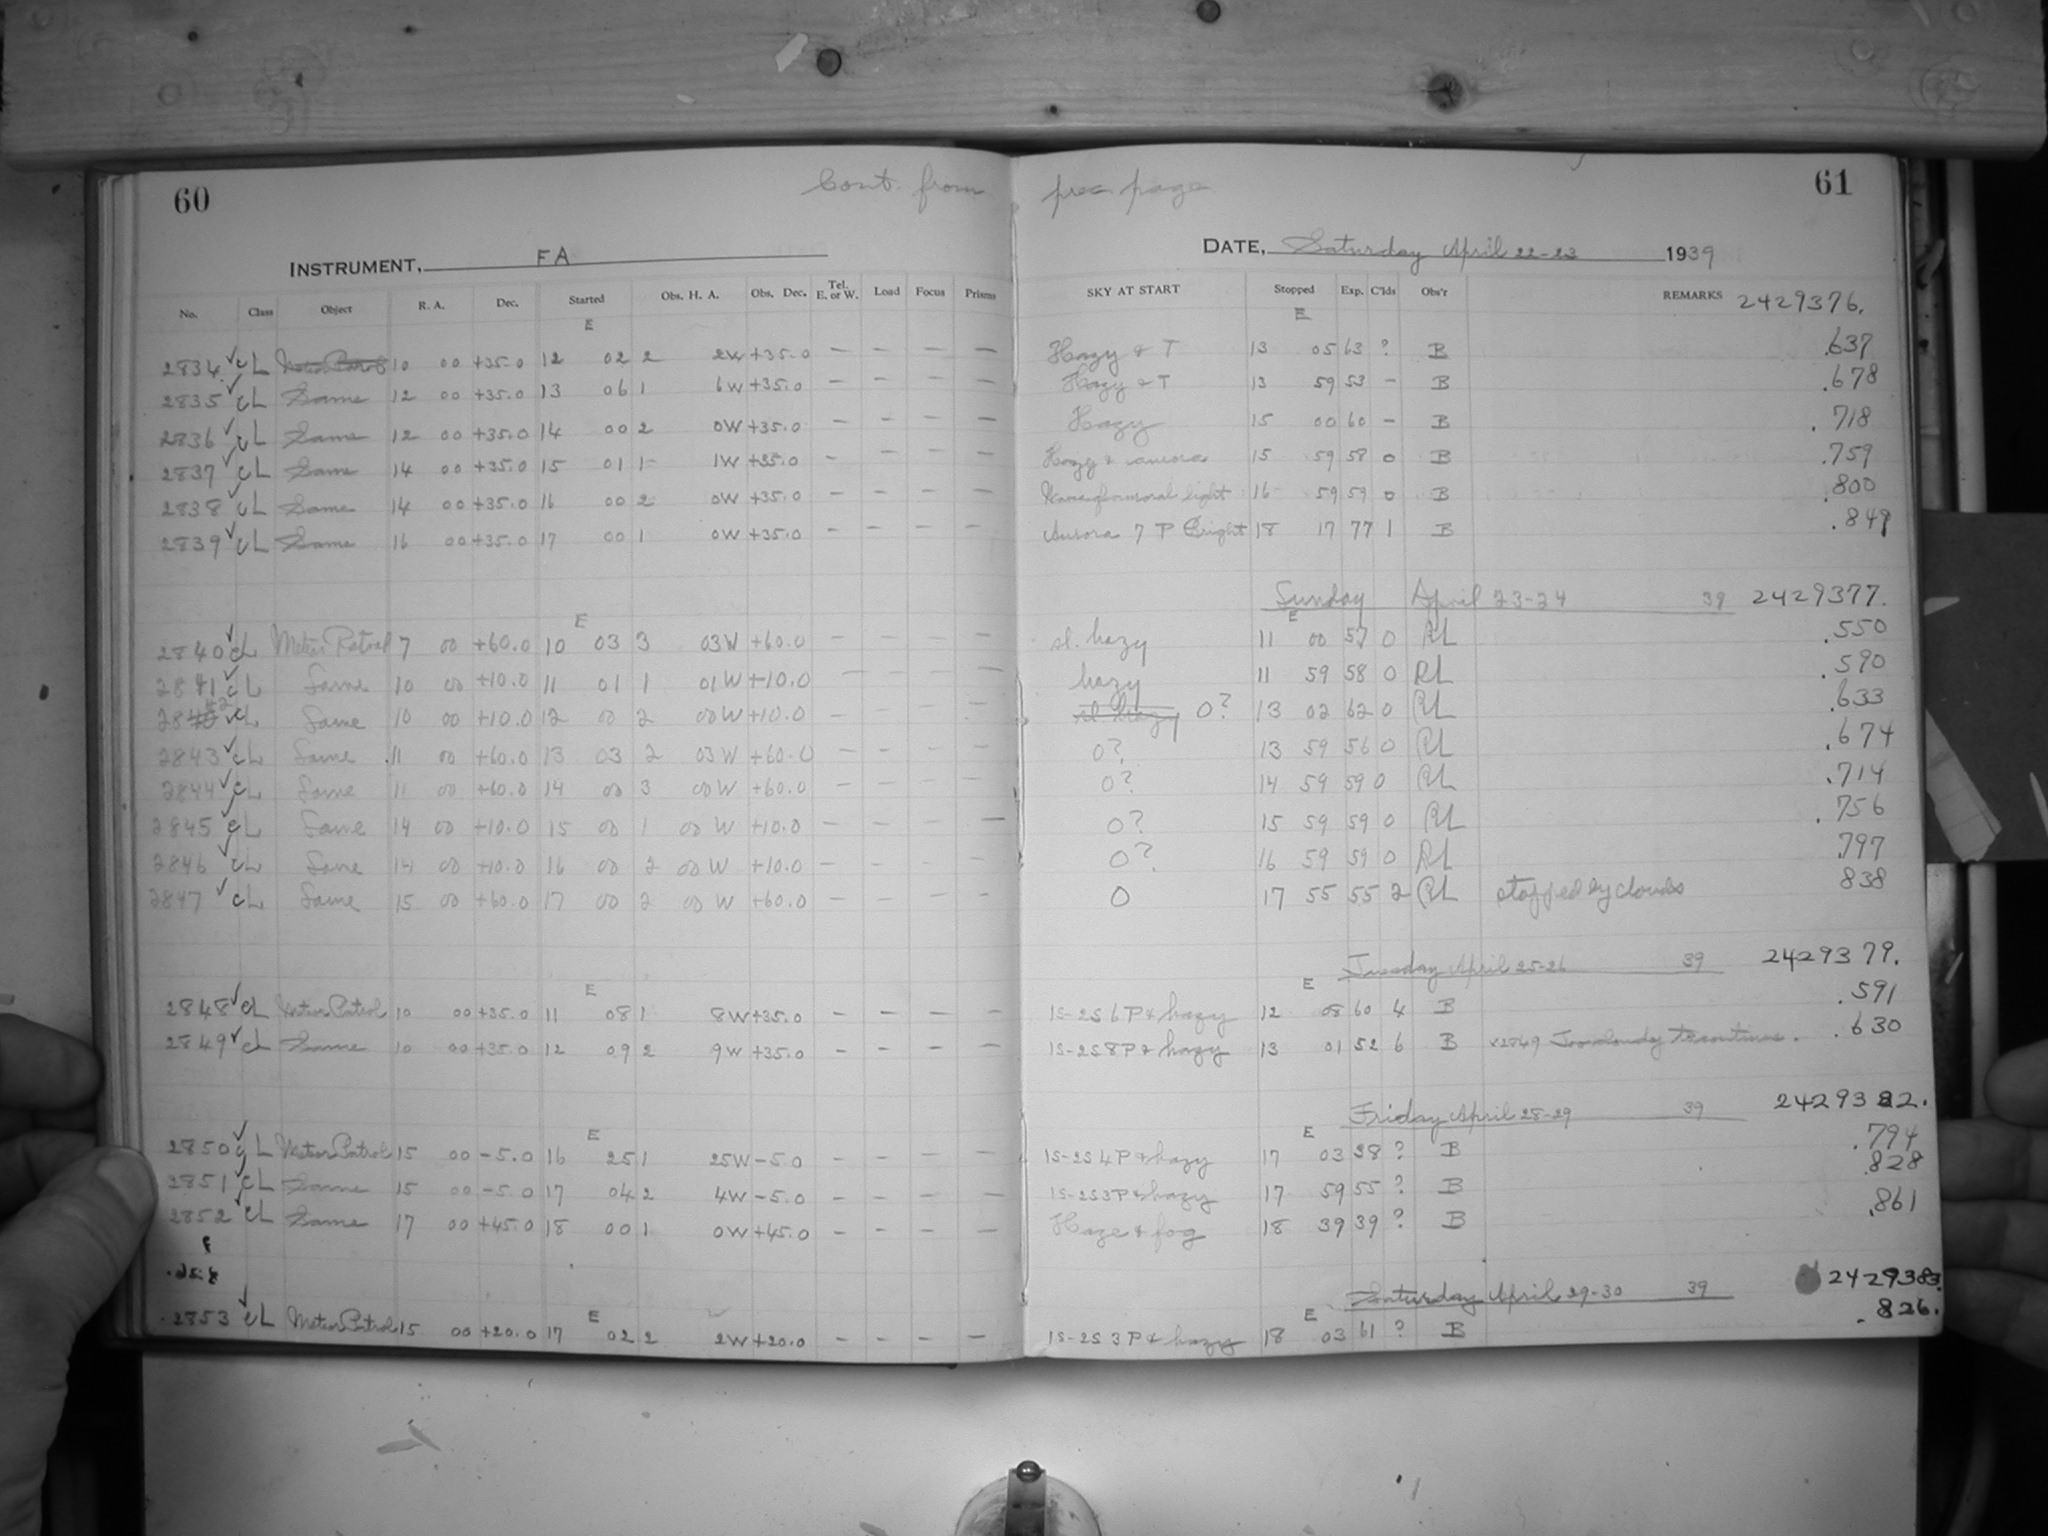 60
Cont. from prec page
61
INSTRUMENT, FA
DATE, Saturday April 22-23 1939
No. Class Object R. A. Dec. Started Obs. H. A. Obs. Dec. Tel. E. or W. Load Focus Prisms SKY AT START Stopped Exp. C'lds Obs'r REMARKS 2429376.
E E
2834 ✓ cL Meteor Patrol 10 00 +35.0 12 02 2 2W +35.0 — — — — Hazy & T 13 05 63 ? B .637
2835 ✓ cL Same 12 00 +35.0 13 06 1 6W +35.0 — — — — Hazy & T 13 59 53 — B .678
2836 ✓ cL Same 12 00 +35.0 14 00 2 0W +35.0 — — — — Hazy 15 00 60 — B .718
2837 ✓ cL Same 14 00 +35.0 15 01 1 1W +35.0 — — — — Hazy & aurora 15 59 58 0 B .759
2838 ✓ cL Same 14 00 +35.0 16 00 2 0W +35.0 — — — — light 16 59 59 0 B .800
2839 ✓ cL Same 16 00 +35.0 17 00 1 0W +35.0 — — — — Aurora 7 P Bright 18 17 77 1 B .849
Sunday April 23-24 39 2429377.
E E
2840 ✓ cL Meteor Patrol 7 00 +60.0 10 03 3 03W +60.0 — — — — sl. hazy 11 00 57 0 RL .550
2841 ✓ cL Same 10 00 +10.0 11 01 1 01W +10.0 — — — — hazy 11 59 58 0 RL .590
2842 ✓ cL Same 10 00 +10.0 12 00 2 00W +10.0 — — — — sl. hazy 0? 13 02 62 0 RL .633
2843 ✓ cL Same 11 00 +60.0 13 03 2 03W +60.0 — — — — 0? 13 59 56 0 RL .674
2844 ✓ cL Same 11 00 +60.0 14 00 3 00W +60.0 — — — — 0? 14 59 59 0 RL .714
2845 ✓ cL Same 14 00 +10.0 15 00 1 00W +10.0 — — — — 0? 15 59 59 0 RL .756
2846 ✓ cL Same 14 00 +10.0 16 00 2 00W +10.0 — — — — 0? 16 59 59 0 RL .797
2847 ✓ cL Same 15 00 +60.0 17 00 2 00W +60.0 — — — — 0 17 55 55 2 RL stopped by clouds 838
Tuesday April 25-26 39 2429379.
E E
2848 ✓ cL Meteor Patrol 10 00 +35.0 11 08 1 8W +35.0 — — — — 1S-2S 6 P & hazy 12 08 60 4 B .591
2849 ✓ cL Same 10 00 +35.0 12 09 2 9W +35.0 — — — — 1S-2S 8 P & hazy 13 01 52 6 B x2849 Too cloudy to continue. .630
Friday April 28-29 39 2429382.
E E
2850 ✓ cL Meteor Patrol 15 00 -5.0 16 25 1 25W -5.0 — — — — 1S-2S 4 P & hazy 17 03 38 ? B .794
2851 ✓ cL Same 15 00 -5.0 17 04 2 4W -5.0 — — — — 1S-2S 3 P & hazy 17 59 55 ? B .828
2852 ✓ cL Same 17 00 +45.0 18 00 1 0W +45.0 — — — — Haze & fog 18 39 39 ? B .861
Saturday April 29-30 39 2429383.
E E
2853 ✓ cL Meteor Patrol 15 00 +20.0 17 02 2 2W +20.0 — — — — 1S-2S 3 P & hazy 18 03 61 ? B .826.